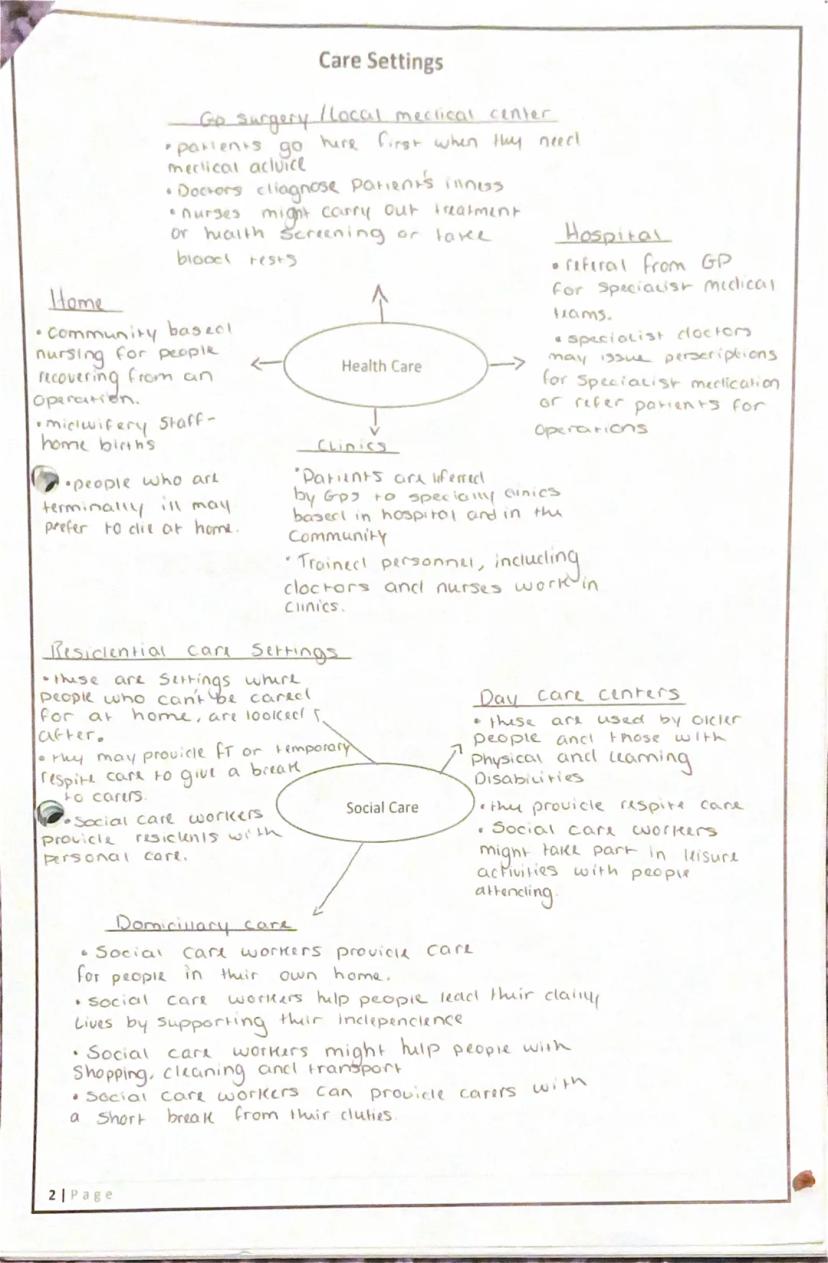 Care Settings
Gp surgery / local medical center
• patients go here first when they need
medical advice
• Doctors diagnose patient's illness
• nurses might carry out treatment
or health screening or take
blood tests
Hospital
• referal from GP
for specialist medical
teams.
• specialist doctors
may issue perscriptions
for specialist medication
or refer patients for
operations
Home
• community based
nursing for people
recovering from an
operation.
• midwifery staff-
home births
• people who are
terminally ill may
prefer to die at home.
Health Care
Clinics
• Patients are referred
by GPs to specialty clinics
based in hospital and in the
community
• Trained personnel, including
doctors and nurses work in
clinics.
Residential care settings
• these are settings where
people who can't be cared
for at home, are looked
after.
• they may provide FT or temporary
respite care to give a break
to carers.
• Social care workers
provide residents with
personal care.
Social Care
Day care centers
• these are used by older
people and those with
Physical and learning
Disabilities
• they provide respite care
• Social care workers
might take part in leisure
activities with people
attending.
Domicillary care
• Social care workers provide care
for people in their own home.
• social care workers help people lead their daily
lives by supporting their independence
• Social care workers might help people with
shopping, cleaning and transport
• social care workers can provide carers with
a short break from their duties.
2 | Page